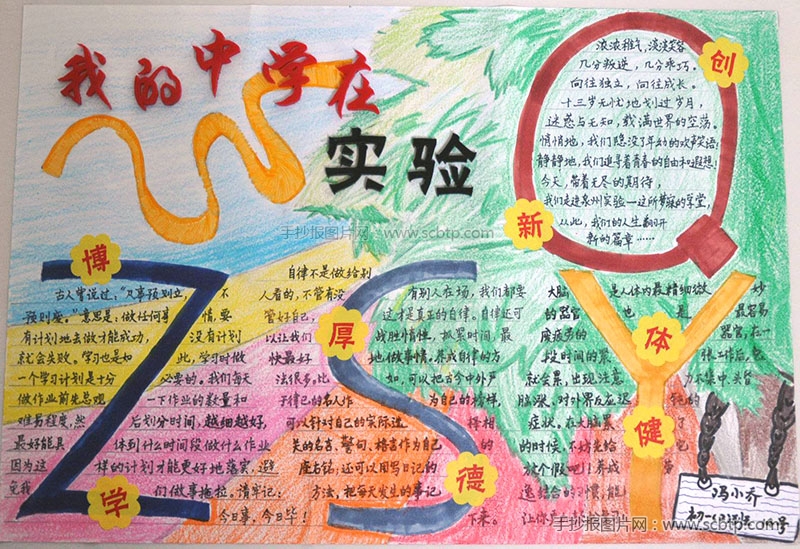 我的中学在
实验
手抄报图片网：www.scbtp.com
创
新
浓浓稚气，淡淡笑容
几分叛逆，几分乖巧。
向往独立，向往成长。
十三岁无忧地划过岁月，
迷惑与无知，载满世界的空荡。
悄悄地，我们隐没了年幼的欢声笑语；
静静地，我们追寻着青春的自由和遐想！
今天，带着无尽的期待，
我们走进泉州实验—这所梦寐的学堂，
从此，我们的人生翻开
新的篇章……
博
学
古人曾说过："凡事预则立，不
预则废。"意思是：做任何事情，要
有计划地去做才能成功，没有计划
就会失败。学习也是如此，学习时做
一个学习计划是十分必要的。我们每天
做作业前先总观一下作业的数量和
难易程度，然后划分时间，越细越好，
最好能具体到什么时间段做什么作业
因为这样的计划才能更好地落实，避
免我们做事拖拉，清牢记：
今日事，今日毕！
厚
德
自律不是做给别
人看的，不管有没有别人在场，我们都要
管好自己，这才是真正的自律。自律还可
以让我们战胜惰性，抓紧时间，最
快最好地做事情。养成自律的方
法很多，比如，可以把古今中外严
于律己的名人作为自己的榜样，
可以针对自己的实际选择相
关的名言、警句、格言作为自己
座右铭，还可以用写日记的
方法，把每天发生的事记
下来。
体
健
大脑是人体的最精细微妙
的器官，也是最容易
疲劳的器官，在一
段时间的紧张工作后，它
就会累，出现注意力不集中、头昏
脑涨、对外界反应迟钝的
症状。在大脑累了
的时候，不妨先给
放个假吧！养成劳
逸结合的习惯，能
冯小乔
初一(2)班
手抄报图片网：www.scbtp.com